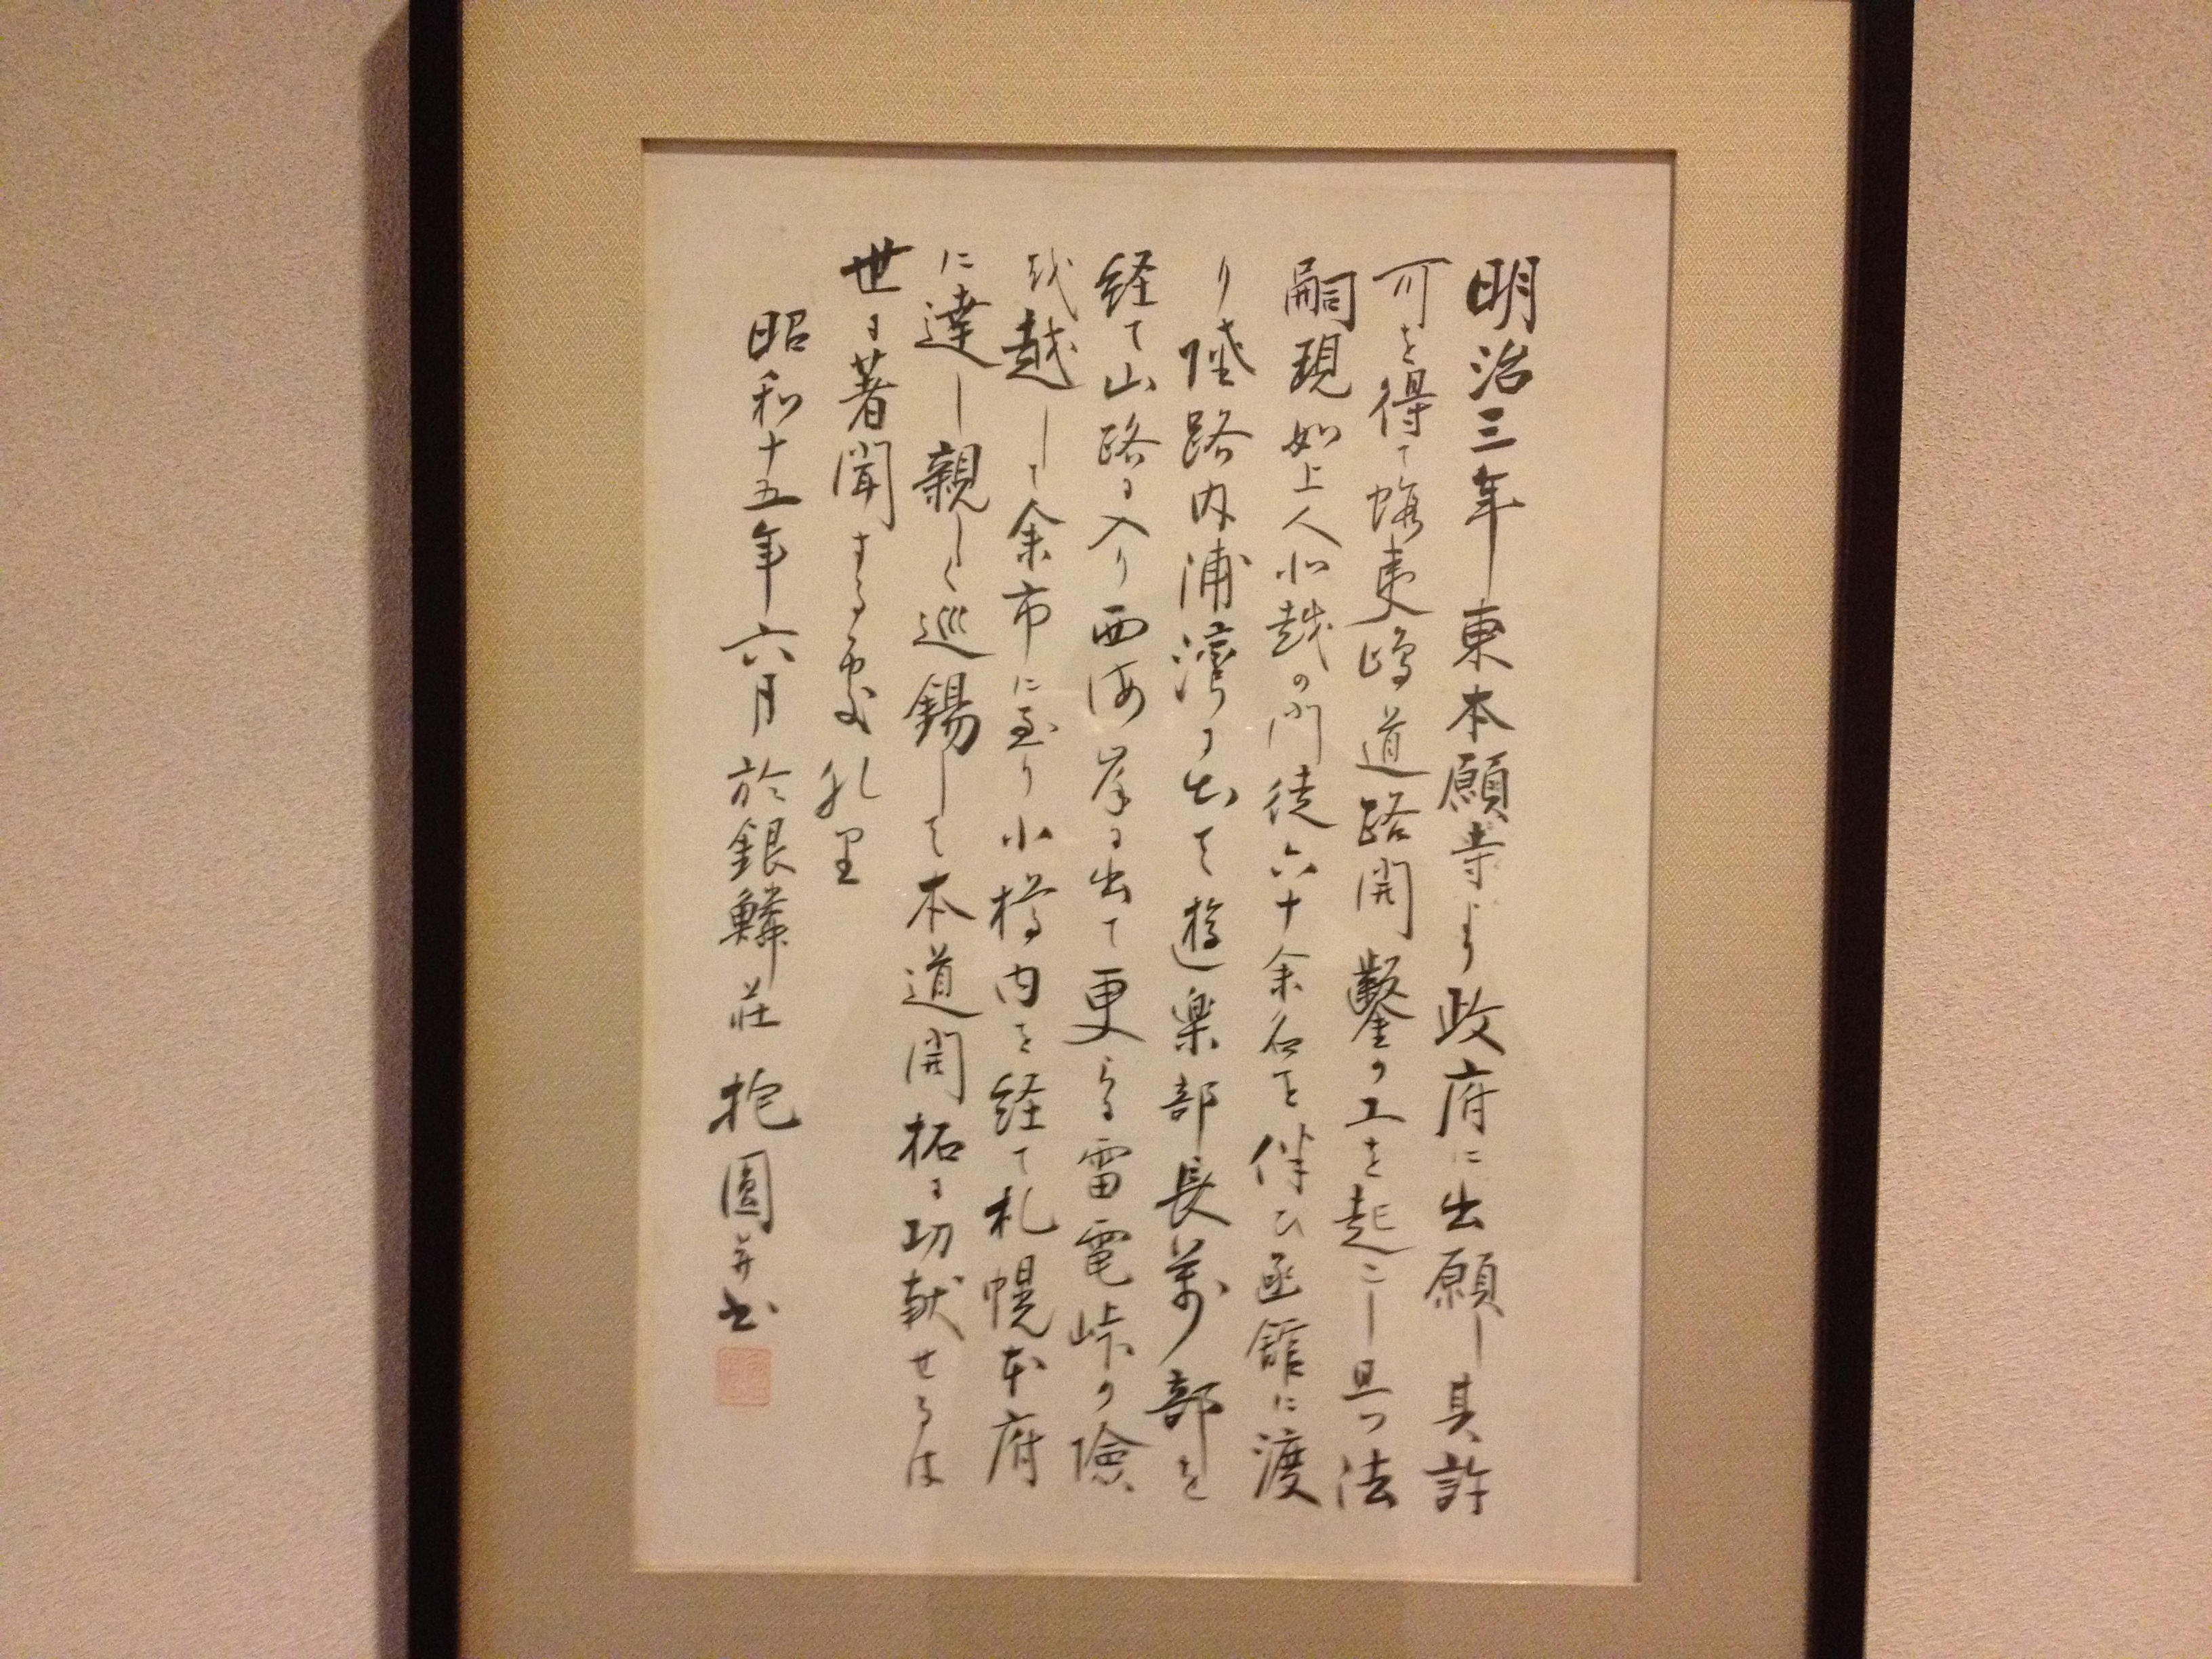 明治三年東本願寺より政府に出願し其許
可を得て蝦夷嶋道路開鑿の工を起こし且つ法
嗣現如上人北越の門徒六十余名を伴ひ函館に渡
り陸路内浦湾に出て遊楽部長萬部を
経て山路に入り西海岸に出て更に雷電峠の険
を越して余市に至り小樽内を経て札幌本府
に達し親しく巡錫して本道開拓に功献せるは
世に著聞する処也
昭和十五年六月於銀鱗荘 抱圓 書